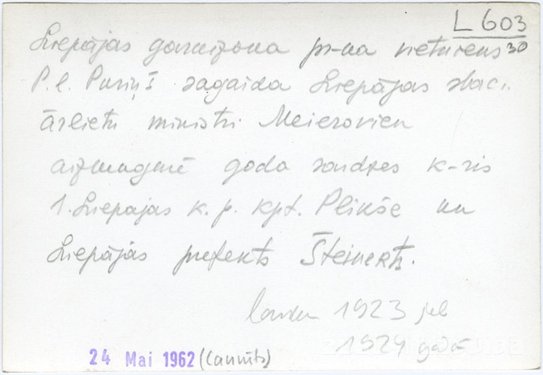 L 603
30
Liepājas garnizona pr-ka vietnieks
P. l. Puriņš sagaida Liepājas stac.
ārlietu ministri Meierovicu
aizmugurē goda sardzes k-ris
1. Liepājas k. p. kpt. Plikše un
Liepājas prefekts Šteinerts.
1923 jeb
1924 gadā
24 Mai 1962